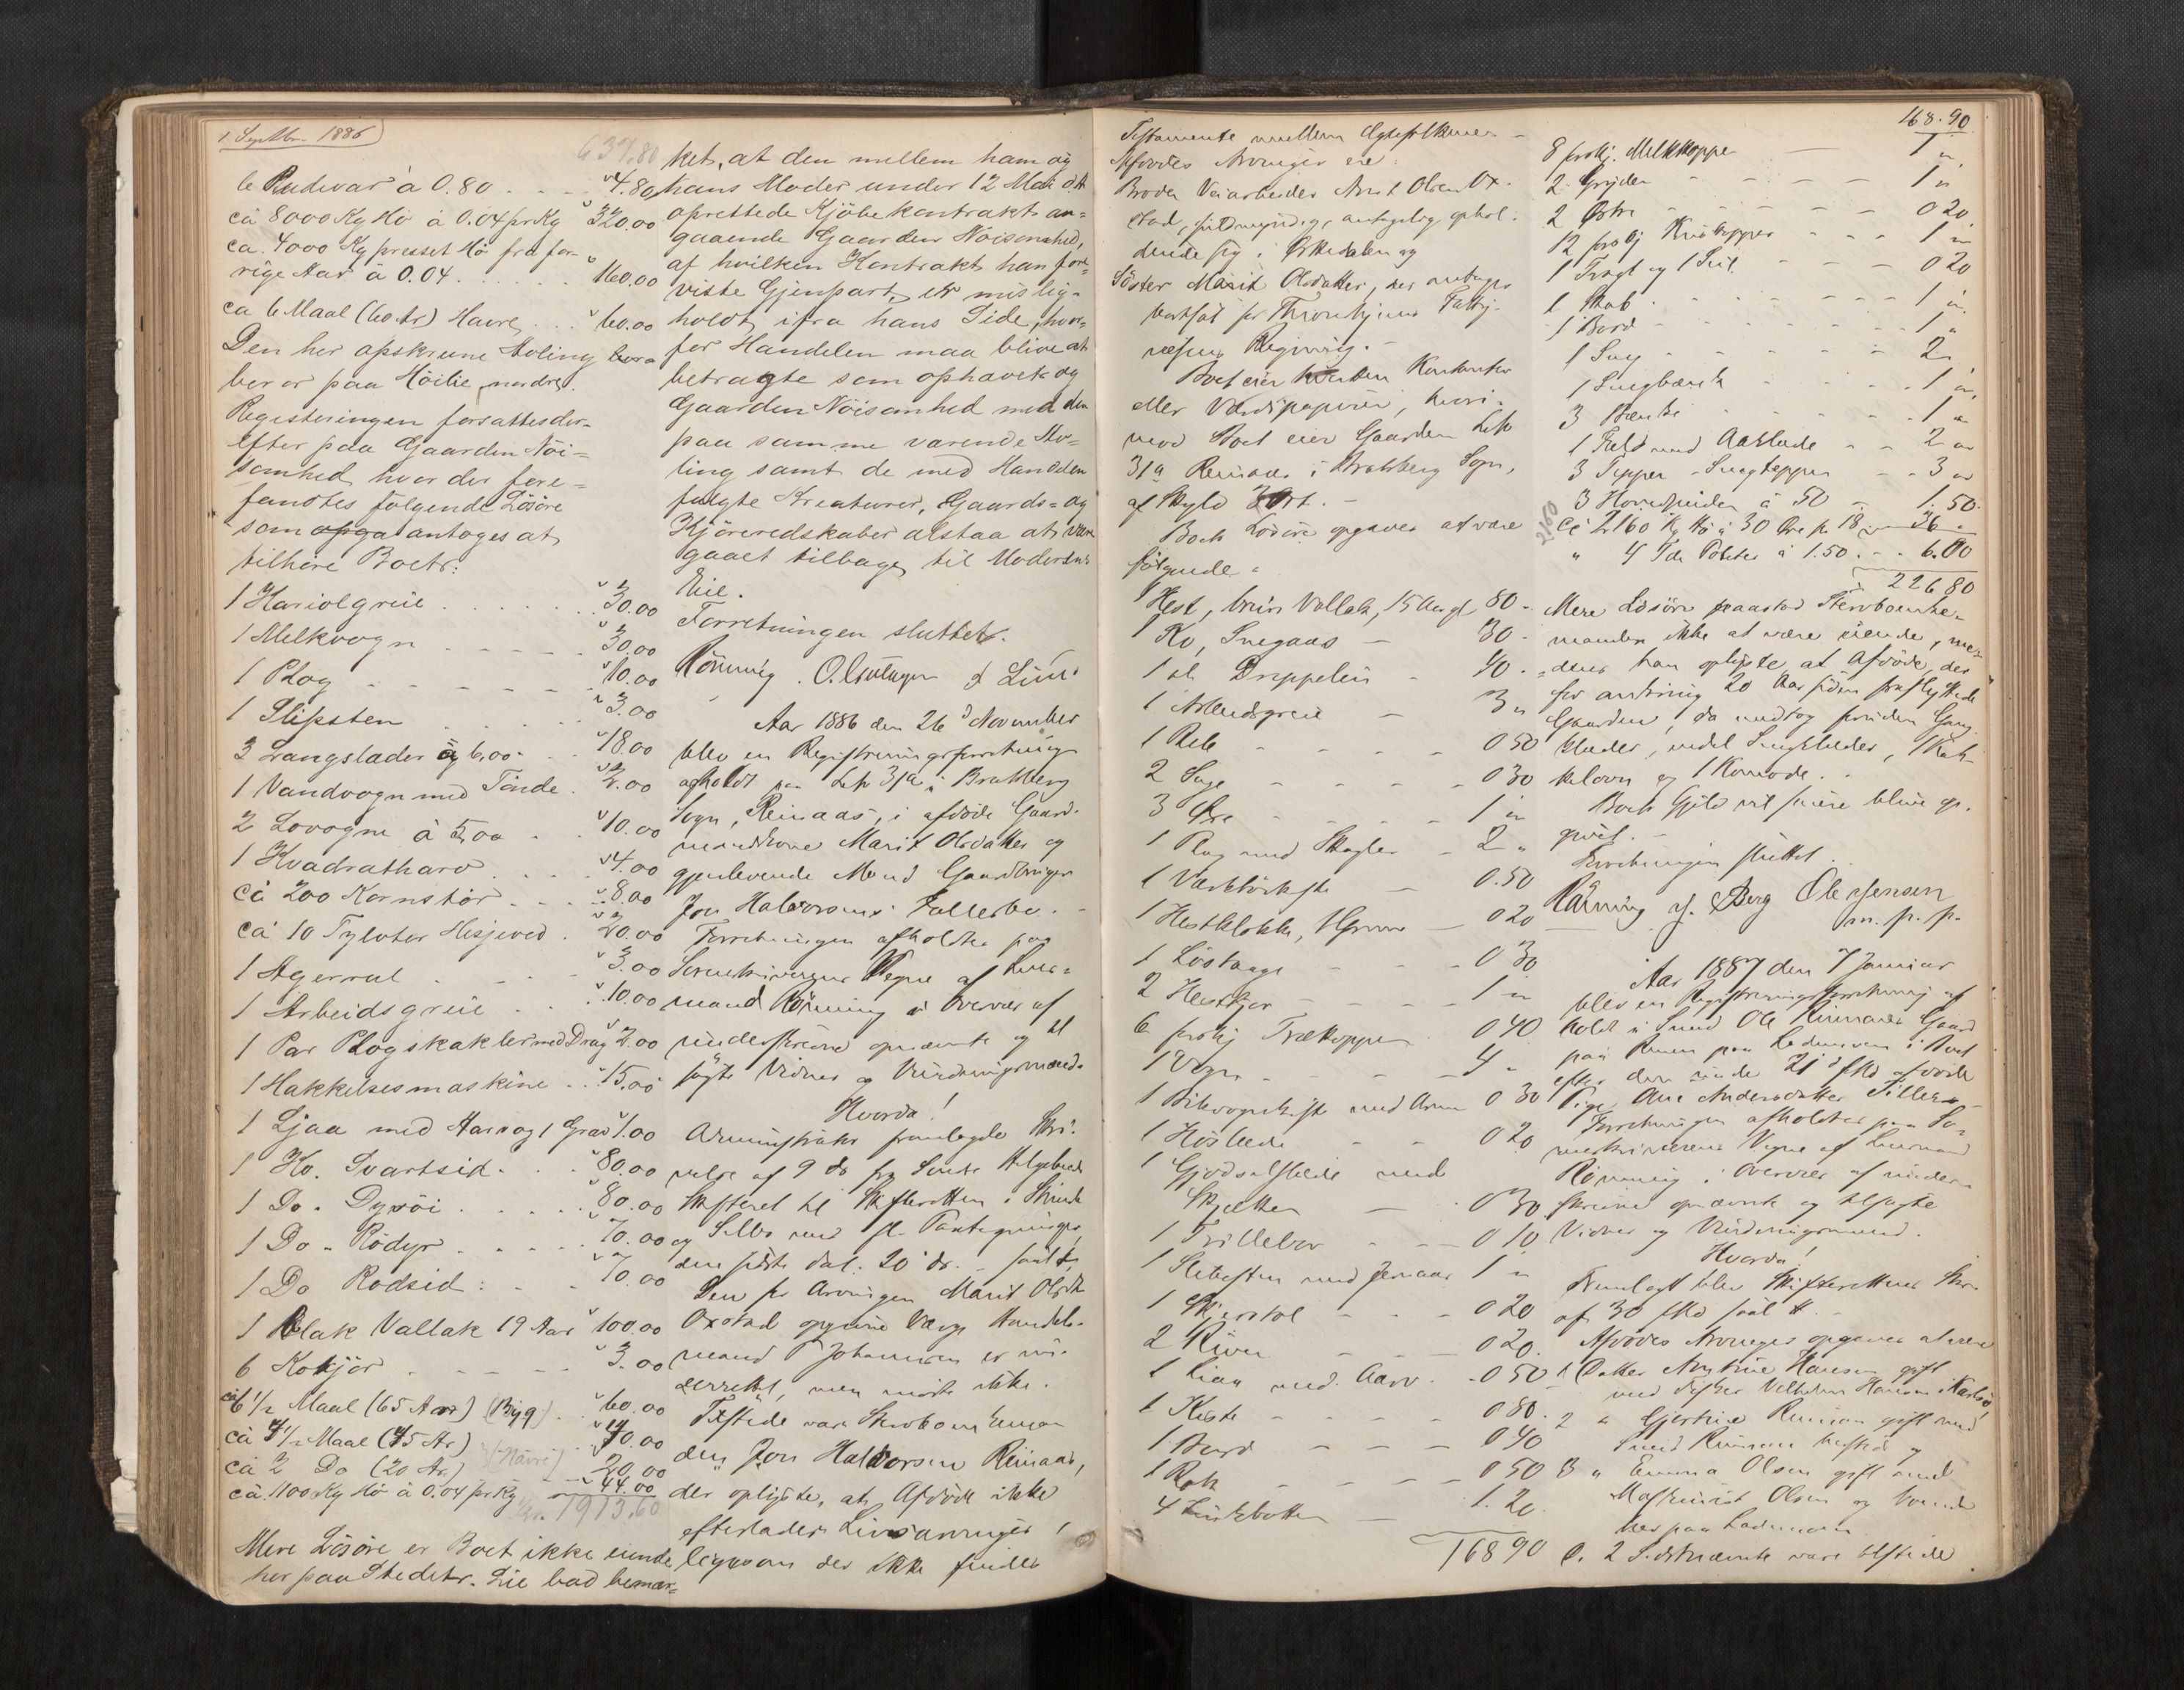 1 Septbr 1886
637.80
6 Rudevar à 0.80 4.80
ca 8000 Kg Hö à 0.04 pr Kg 320.00
ca. 4000 Kg presset Hö fra for-
rige Aar à 0.04 160.00
ca 6 Maal (60 Ar) Havre 60.00
Den her opskrevne Avling bero
ber paa Höilie nordre.
Registeringen forsattes der-
efter paa Gaarden Nöi=
somhed hvor der fore=
fandtes fölgende Lösöre
som opga antoges at
tilhöre Boet:
1 Kariolgreie 30.00
1 Melkvogn 30.00
1 Plog 10.00
1 Slipsten 3.00
3 Langslæder à 6,00 18.00
1 Vandvogn med Tönde 2.00
2 Lovogne à 5,00 10.00
1 Kvadratharv 4.00
ca 200 Kornstör 8.00
ca 10 Tylvter Hesjeved 20.00
1 Agerval 3.00
1 Arbeidsgreie 10.00
1 Par Plogskakler med Drag 2.00
1 Hakkelsesmaskine 15.00
1 Ljaa med Aarv og 1 Grev 1.00
1 Ko. Svartsid 80.00
1 Do. Dyröi 80.00
1 Do. Rödyr 70.00
1 Do Rodsid 70.00
1 Blak Vallak 19 Aar 100.00
6 Kokjör 3.00
ca 6 1/2 Maal (65 Aar) (Byg) 60.00
ca 7 1/2 Maal (75 Ar) 70.00
ca 2 Do (20 Ar) (Havre) 20.00
ca. 1100 Kg Hö à 0.04 pr Kg 44.00
Kr. 1913.60
Mere Lösöre er Boet ikke eiende
her paa Stedet. Lie bad bemær=
ket, at den mellem ham og
hans Moder under 12 Mai d.A
oprettede Kjöbekontrakt an=
gaaende Gaarden Nöisomhed,
af hvilken Kontrakt han fore=
viste Gjenpart, er mislig-
holdt ifra hans Side, hvor=
for Handelen maa blive at
betragte som ophævet og
Gaarden Nöisomhed med den
paa samme værende Av=
ling samt de med Handelen
fulgte Kreaturer, Gaards= og
Kjöreredskaber altsaa at være
gaaet tilbage til Moderens
Eie.
Forretningen sluttet.
Rönning. O. Lie
Aar 1886 den 26d November
blev en Registreringsforretning
afholdt paa 31a i Bratsberg
Sogn, Reinaas, i afdöde Gaard-
mandskone Marit Olsdatter og
gjenlevende Mand Gaardbruger
Jon Halvorsens Fællesbo.
Forretningen afholdtes paa
Sorenskriverens Vegne af Lens=
mand Rönning i Overvær af
underskrevne opnævnte og til
sagte Vidner og Vurderingsmænd.
Hvorda!
Administrator fremlagde Skri-
velse af 9 ds fra
Skifteret til Skifteretten i Strinde
og Selbu med fl. Paategninger,
den sidste dat. 20 ds.
Den for Arvingen Marit Olsdtr
Oxstad opgivne Værge Handels-
mand Johannesen er un-
derrettet, men mödte ikke.
Tilstede var Stervboenkeman
den Jon Halvorsen Reinaas,
der oplyste, at Afdöde ikke
efterlader Livsarvinger,
ligesom der ikke findes
Testamente mellem Ægtefolkene
Afdödes Arvinger ere:
Broder Veiarbeider Arnt Olsen Ox-
stad, fuldmyndig, antagelig ophol-
dende sig i Orkedalen og
Söster Marit Olsdatter, der antages
bortsat for Throndhjems Fattig-
væsens Regning.
Boet eier hverken Kontanter
eller Værdipapirer, hvori-
mod Boet eier Gaarden
31a Reinaas i Bratsberg Sogn,
af Skyld
Boets Lösöre opgaves at være
fölgende:
1 Hest, brun Vallak, 15 Aar gl 80
1 Ko, Snegaas 30
1 do Droppelin 40
1 Arbeidsgreie 3
1 Reb 0 50
2 Sage 0 30
3 Øxe 1
1 Plog med Skagler 2
1 Værktöikiste 0.50
1 Hestklokke, 1 0 20
1 Löstang 0 30
2 Hestkjer 1
6 forskj Trækopper 0 40
1 Vogn 4
0 30
1 Höslæde 0 20
1 Gjödselslæde med
Skjætter 0 30
1 Trillebör 0 10
1 Slibesten med Jernaas 1
1 0 20
2 River 0 20
1 Liaa med Aarv 0 50
1 Kiste 0 80
1 Bord 0 40
1 Rok 0 50
4 1.20
168 90
168.90
8 forskj. Melkkopper 1
2 Gryder 1
2 0 20
12 forskj 1
1 Tragt og 1 Sil 0 20
1 Skab 1
1 Bord 1
1 Seng 2
1 Sengbænk 1
3 Bænke 1
1 Fæld med Aaklæde 2
3 Tepper Sengtepper 3
3 Hovedpuder à 50 1.50
Ca 2160 Kg Hö à 30 Öre pr 18 36
2160
" 4 Tdr Poteter à 1.50 6.00
226 80
Mere Lösöre paastod Stervboenke-
manden ikke at være eiende, me-
dens han oplyste at Afdöde, der
for omkring 20 Aar siden fraflyttede
Gaarden, da medtog sine Gang-
klæder, endel Sengklæder, 1 Kak-
kelovn og 1 Komode.
Boets Gjeld vil senere blive op-
givet.
Forretningen sluttet.
Rönning J. Berg Ole Jensen
m. p. p.
Aar 1887 den 7 Januar
blev en Registreringsforretning af
holdt i Smed Ole Rinnans Gaard
paa Lademoen i Boet
efter den 21d f Md afdöde
Pige Ane Andersdatter Tiller
Forretningen afholdtes paa So-
renskriverens Vegne af Lensmand
Rönning i Overvær af under-
skrevne opnævnte og tilsagte
Vidner og Vurderingsmænd.
Hvorda!
Fremlagt blev Skifterettens Skr.
af 30 f Md
Afdödes Arvinger opgaves at være
1 Datter Hansen gift
med Fisker Vilhelm Hansen i Karlsö
2 " Gjertine Rinnan gift med
Smed Rinnan og
3 " Emma Olsen gift med
Maskinist Olsen og boende
her paa Lademoen.
De 2 Sidstnævnte vare tilstede